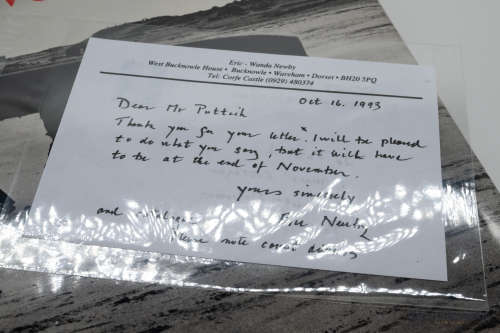 Eric - Wanda Newby
West Bucknowle House • Bucknowle • Wareham • Dorset • BH20 5PQ
Tel: Corfe Castle (0929) 480374
Oct 16. 1993
Dear Mr
Thank you for your letter. I will be pleased
to do what you say, but it will have
to be at the end of November.
yours sincerely
and
Eric Newby
Please note